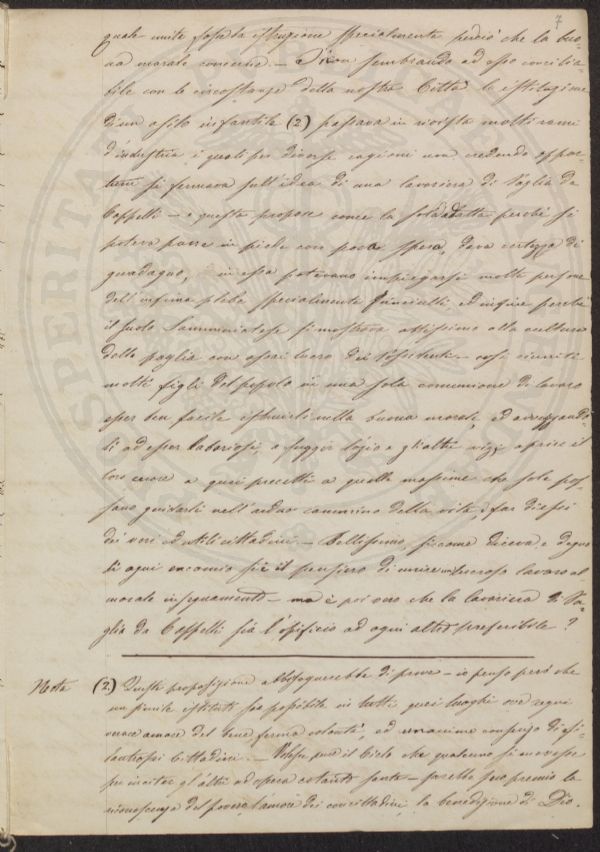 7
quale unita fosse la istruzione specialmente perciò che la buo-
na morale concerne. — Si non sembrando ad esso concilia-
bile con le circostanze della nostra Città la istituzione
di un asilo infantile (2) passava in rivista molti rami
d'industria i quali per diverse ragioni non credendo oppor-
tuni si fermava sull'idea di una lavoriera di Paglia da
Cappelli — e questa propose come la sola adatta perché si
poteva porre in piede con poca spesa, dava certezza di
guadagno, in essa potevano impiegarsi molte persone
dell'infima plebe specialmente fanciulli ed infine perché
il suolo Samminiatese si mostrava attissimo alla cultura
della paglia con assai lucro dei possidenti — così riuniti
molti figli del popolo in una sola comunione di lavoro
esser ben facile istruirli nella buona morale, ed avvezzando-
li ad esser laboriosi, a fuggir l'ozio e gli altri vizi aprire il
loro cuore a quei precetti a quelle massime che sole pos-
sano guidarli nell'arduo cammino della vita, e far di essi
dei veri ed utili cittadini. — Bellissimo, siccome diceva, e degno
di ogni encomio si è il pensiero di unire un lucroso lavoro al
morale insegnamento — ma è poi vero che la lavoriera di Pa-
glia da Cappelli sia l'opificio ad ogni altro preferibile ?
Nota (2) Questa proposizione abbisognerebbe di prove — io penso però che
un simile istituto sia possibile in tutti quei luoghi ove regni
verace amore del bene ferma volontà, ed unanime consenso di fi-
lantropi Cittadini. — Volesse pure il Cielo che qualcuno si movesse
per incitar gl'altri ad opera cotanto santa — sarebbe suo premio la
riconoscenza del povero, l'amore dei concittadini, la benedizione di Dio.